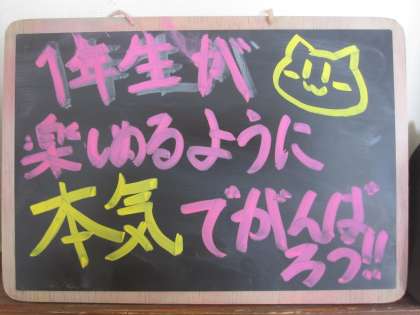 1年生が
楽しめるように
本気でがんば
ろう!!